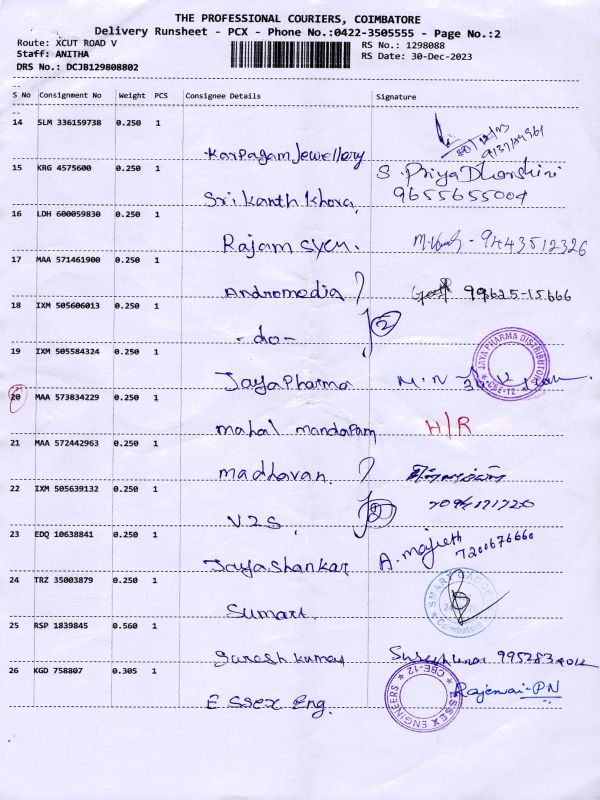 THE PROFESSIONAL COURIERS, COIMBATORE
Delivery Runsheet - PCX - Phone No.:0422-3505555 - Page No.:2
Route: XCUT ROAD V
Staff: ANITHA
DRS No.: DCJB129808802
RS No.: 1298088
RS Date: 30-Dec-2023
S No Consignment No Weight PCS Consignee Details Signature
14 SLM 336159738 0.250 1
Karpagam Jewellery
15 KRG 4575600 0.250 1 S. Priya Dharshini
Sri Kanth Khora 9655655004
16 LDH 600059830 0.250 1
Rajam sycm. 9443512326
17 MAA 571461900 0.250 1
Andromedia 99625-15666
18 IXM 505606013 0.250 1
-do- 2
19 IXM 505584324 0.250 1 JAYA PHARMA DISTRIBUTORS CBE-12
Jaya Pharma M.N
20 MAA 573834229 0.250 1
mahal mandapam H/R
21 MAA 572442963 0.250 1
madhavan
22 IXM 505639132 0.250 1
V2S
23 EDQ 10638841 0.250 1 A. majieth
Jayashankar 7200676660
24 TRZ 35003879 0.250 1 SMART Coimbatore
Sumart
25 RSP 1839845 0.560 1
Suresh kumar
26 KGD 758807 0.305 1 ESSEX ENGINEERS CBE-12
Essex Eng.